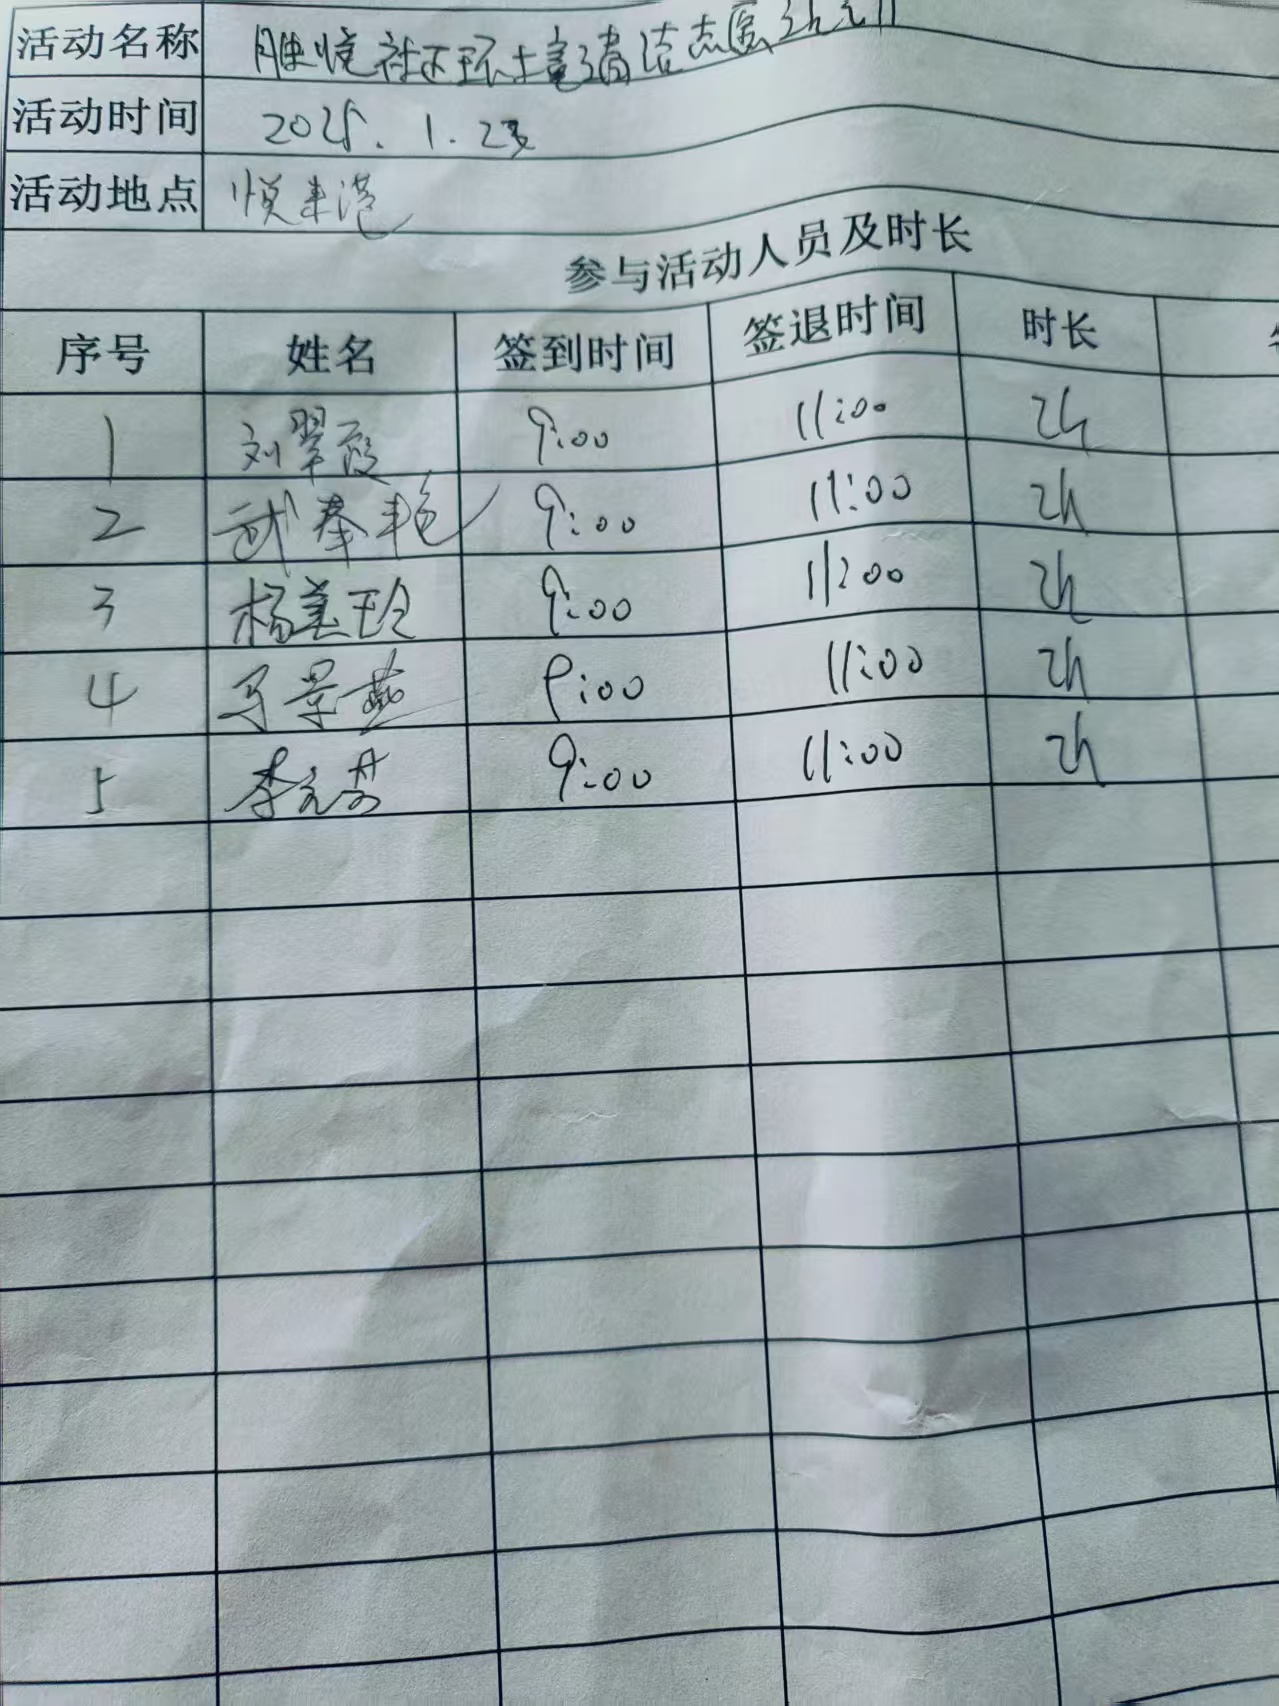 活动名称 胜悦社区环境清洁志愿活动
活动时间 2025.1.23
活动地点 悦来港
参与活动人员及时长
序号 姓名 签到时间 签退时间 时长
1 刘翠霞 9:00 11:00 2h
2 武奉艳 9:00 11:00 2h
3 杨美玲 9:00 11:00 2h
4 马景燕 9:00 11:00 2h
5 李元芬 9:00 11:00 2h